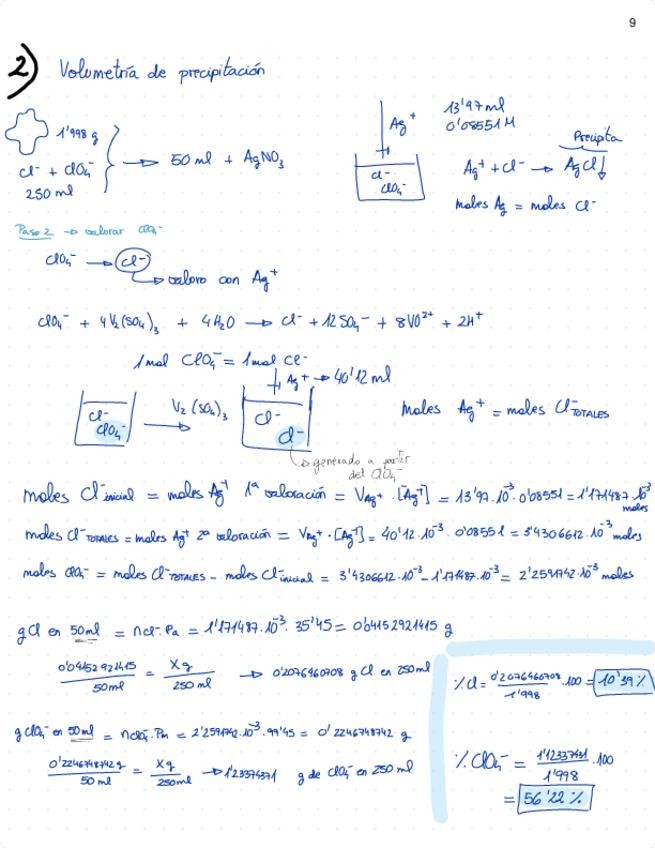 9
2) Volumetría de precipitación
1'998 g
Cl⁻ + ClO₄⁻
250 ml
→ 50 ml + AgNO₃
Ag⁺
13'97 ml
0'08551 M
Cl⁻
ClO₄⁻
Precipita
Ag⁺ + Cl⁻ → AgCl↓
moles Ag = moles Cl⁻
Paso 2 → valorar ClO₄⁻
ClO₄⁻ → Cl⁻
→ valoro con Ag⁺
ClO₄⁻ + 4V₂(SO₄)₃ + 4H₂O → Cl⁻ + 12SO₄⁻ + 8VO²⁺ + 2H⁺
1 mol ClO₄⁻ = 1 mol Cl⁻
Ag⁺ → 40'12 ml
Cl⁻
ClO₄⁻
V₂(SO₄)₃
→
Cl⁻
Cl⁻
→ generado a partir
del ClO₄⁻
Moles Ag⁺ = moles Cl⁻TOTALES
moles Cl⁻inicial = moles Ag⁺ 1ª valoración = VAg⁺ · [Ag⁺] = 13'97·10⁻³ · 0'08551 = 1'171487·10⁻³
moles
moles Cl⁻TOTALES = moles Ag⁺ 2ª valoración = VAg⁺ · [Ag⁺] = 40'12·10⁻³ · 0'08551 = 3'4306612·10⁻³ moles
moles ClO₄⁻ = moles Cl⁻TOTALES - moles Cl⁻inicial = 3'4306612·10⁻³ - 1'171487·10⁻³ = 2'2591742·10⁻³ moles
g Cl en 50ml = nCl⁻ · Pa = 1'171487·10⁻³ · 35'45 = 0'04152921415 g
0'04152921415 / 50ml = X g / 250 ml → 0'2076460708 g Cl en 250ml
% Cl = 0'2076460708 / 1'998 · 100 = 10'39 %
g ClO₄⁻ en 50ml = nClO₄⁻ · Pm = 2'2591742·10⁻³ · 99'45 = 0'2246748742 g
0'2246748742 g / 50 ml = X g / 250ml → 1'12337431 g de ClO₄⁻ en 250 ml
% ClO₄⁻ = 1'12337431 / 1'998 · 100
= 56'22 %